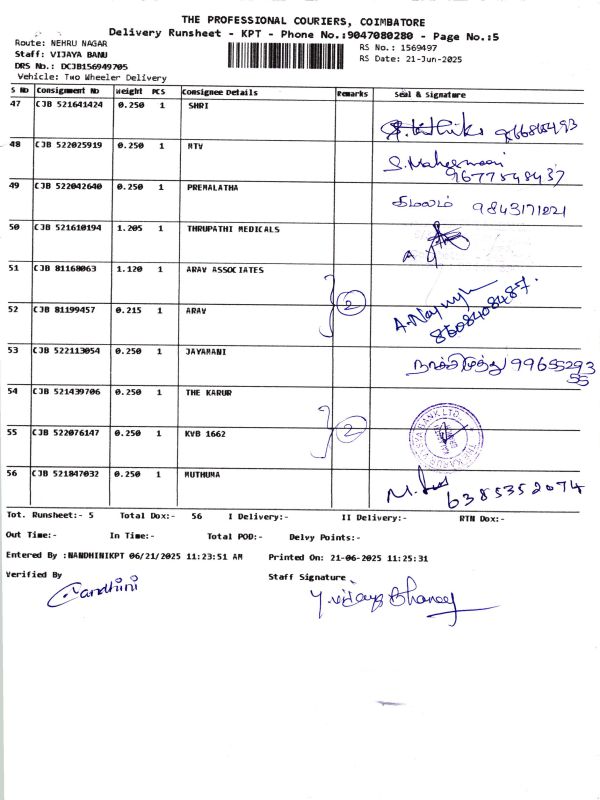 THE PROFESSIONAL COURIERS, COIMBATORE
Delivery Runsheet - KPT - Phone No.:9047080280 - Page No.:5
Route: NEHRU NAGAR
RS No.: 1569497
Staff: VIJAYA BANU
RS Date: 21-Jun-2025
DRS No.: DCJB156949705
Vehicle: Two Wheeler Delivery
S No Consignment No Weight PCS Consignee Details Remarks Seal & Signature
47 CJB 521641424 0.250 1 SHRI
48 CJB 522025919 0.250 1 MTV
S. Maheswari
9677548437
49 CJB 522042640 0.250 1 PREMALATHA
கமலம் 9843171221
50 CJB 521610194 1.205 1 THRUPATHI MEDICALS
51 CJB 81168063 1.120 1 ARAV ASSOCIATES
2
52 CJB 81199457 0.215 1 ARAV
8508408487.
53 CJB 522113054 0.250 1 JAYAMANI
9965529355
54 CJB 521439706 0.250 1 THE KARUR
2
55 CJB 522076147 0.250 1 KVB 1662
56 CJB 521847032 0.250 1 MUTHUMA
6385352074
Tot. Runsheet:- 5 Total Dox:- 56 I Delivery:- II Delivery:- RTN Dox:-
Out Time:- In Time:- Total POD:- Delvy Points:-
Entered By :NANDHINIKPT 06/21/2025 11:23:51 AM Printed On: 21-06-2025 11:25:31
Verified By Staff Signature
Nandhini Y. Vijaya Bhanu